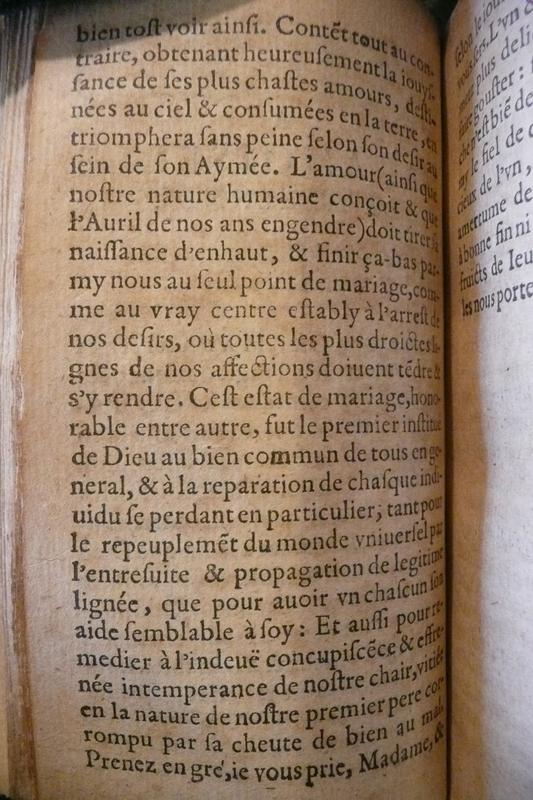 bien toſt voir ainſi. Contẽt tout au con-
traire, obtenant heureuſement la iouyſ-
ſance de ſes plus chaſtes amours, deſti-
nées au ciel & conſumées en la terre, en
triomphera ſans peine ſelon ſon deſir au
ſein de ſon Aymée. L'amour(ainſi que
noſtre nature humaine conçoit & que
l'Auril de nos ans engendre)doit tirer ſa
naiſſance d'enhaut, & finir ça-bas par-
my nous au ſeul point de mariage,com-
me au vray centre eſtably à l'arreſt de
nos deſirs, où toutes les plus droictes li-
gnes de nos affections doiuent tẽdre &
s'y rendre. Ceſt eſtat de mariage,hono-
rable entre autre, fut le premier inſtitué
de Dieu au bien commun de tous en ge-
neral, & à la reparation de chaſque indi-
uidu ſe perdant en particulier; tant pour
le repeuplemẽt du monde vniuerſel par
l'entreſuite & propagation de legitime
lignée, que pour auoir vn chaſcun ſon
aide ſemblable à ſoy: Et auſſi pour re-
medier à l'indeuë concupiſcẽce & effre-
née intemperance de noſtre chair, vitiée
en la nature de noſtre premier pere cor-
rompu par ſa cheute de bien au mal.
Prenez en gré,ie vous prie, Madame, &
ſelon le iou
vous
plus deli
pouſter :
bié de
my le fiel de
cieux de l'vn,
amertume de
à bonne fin ni
fruicts de Ieu
les nous porte